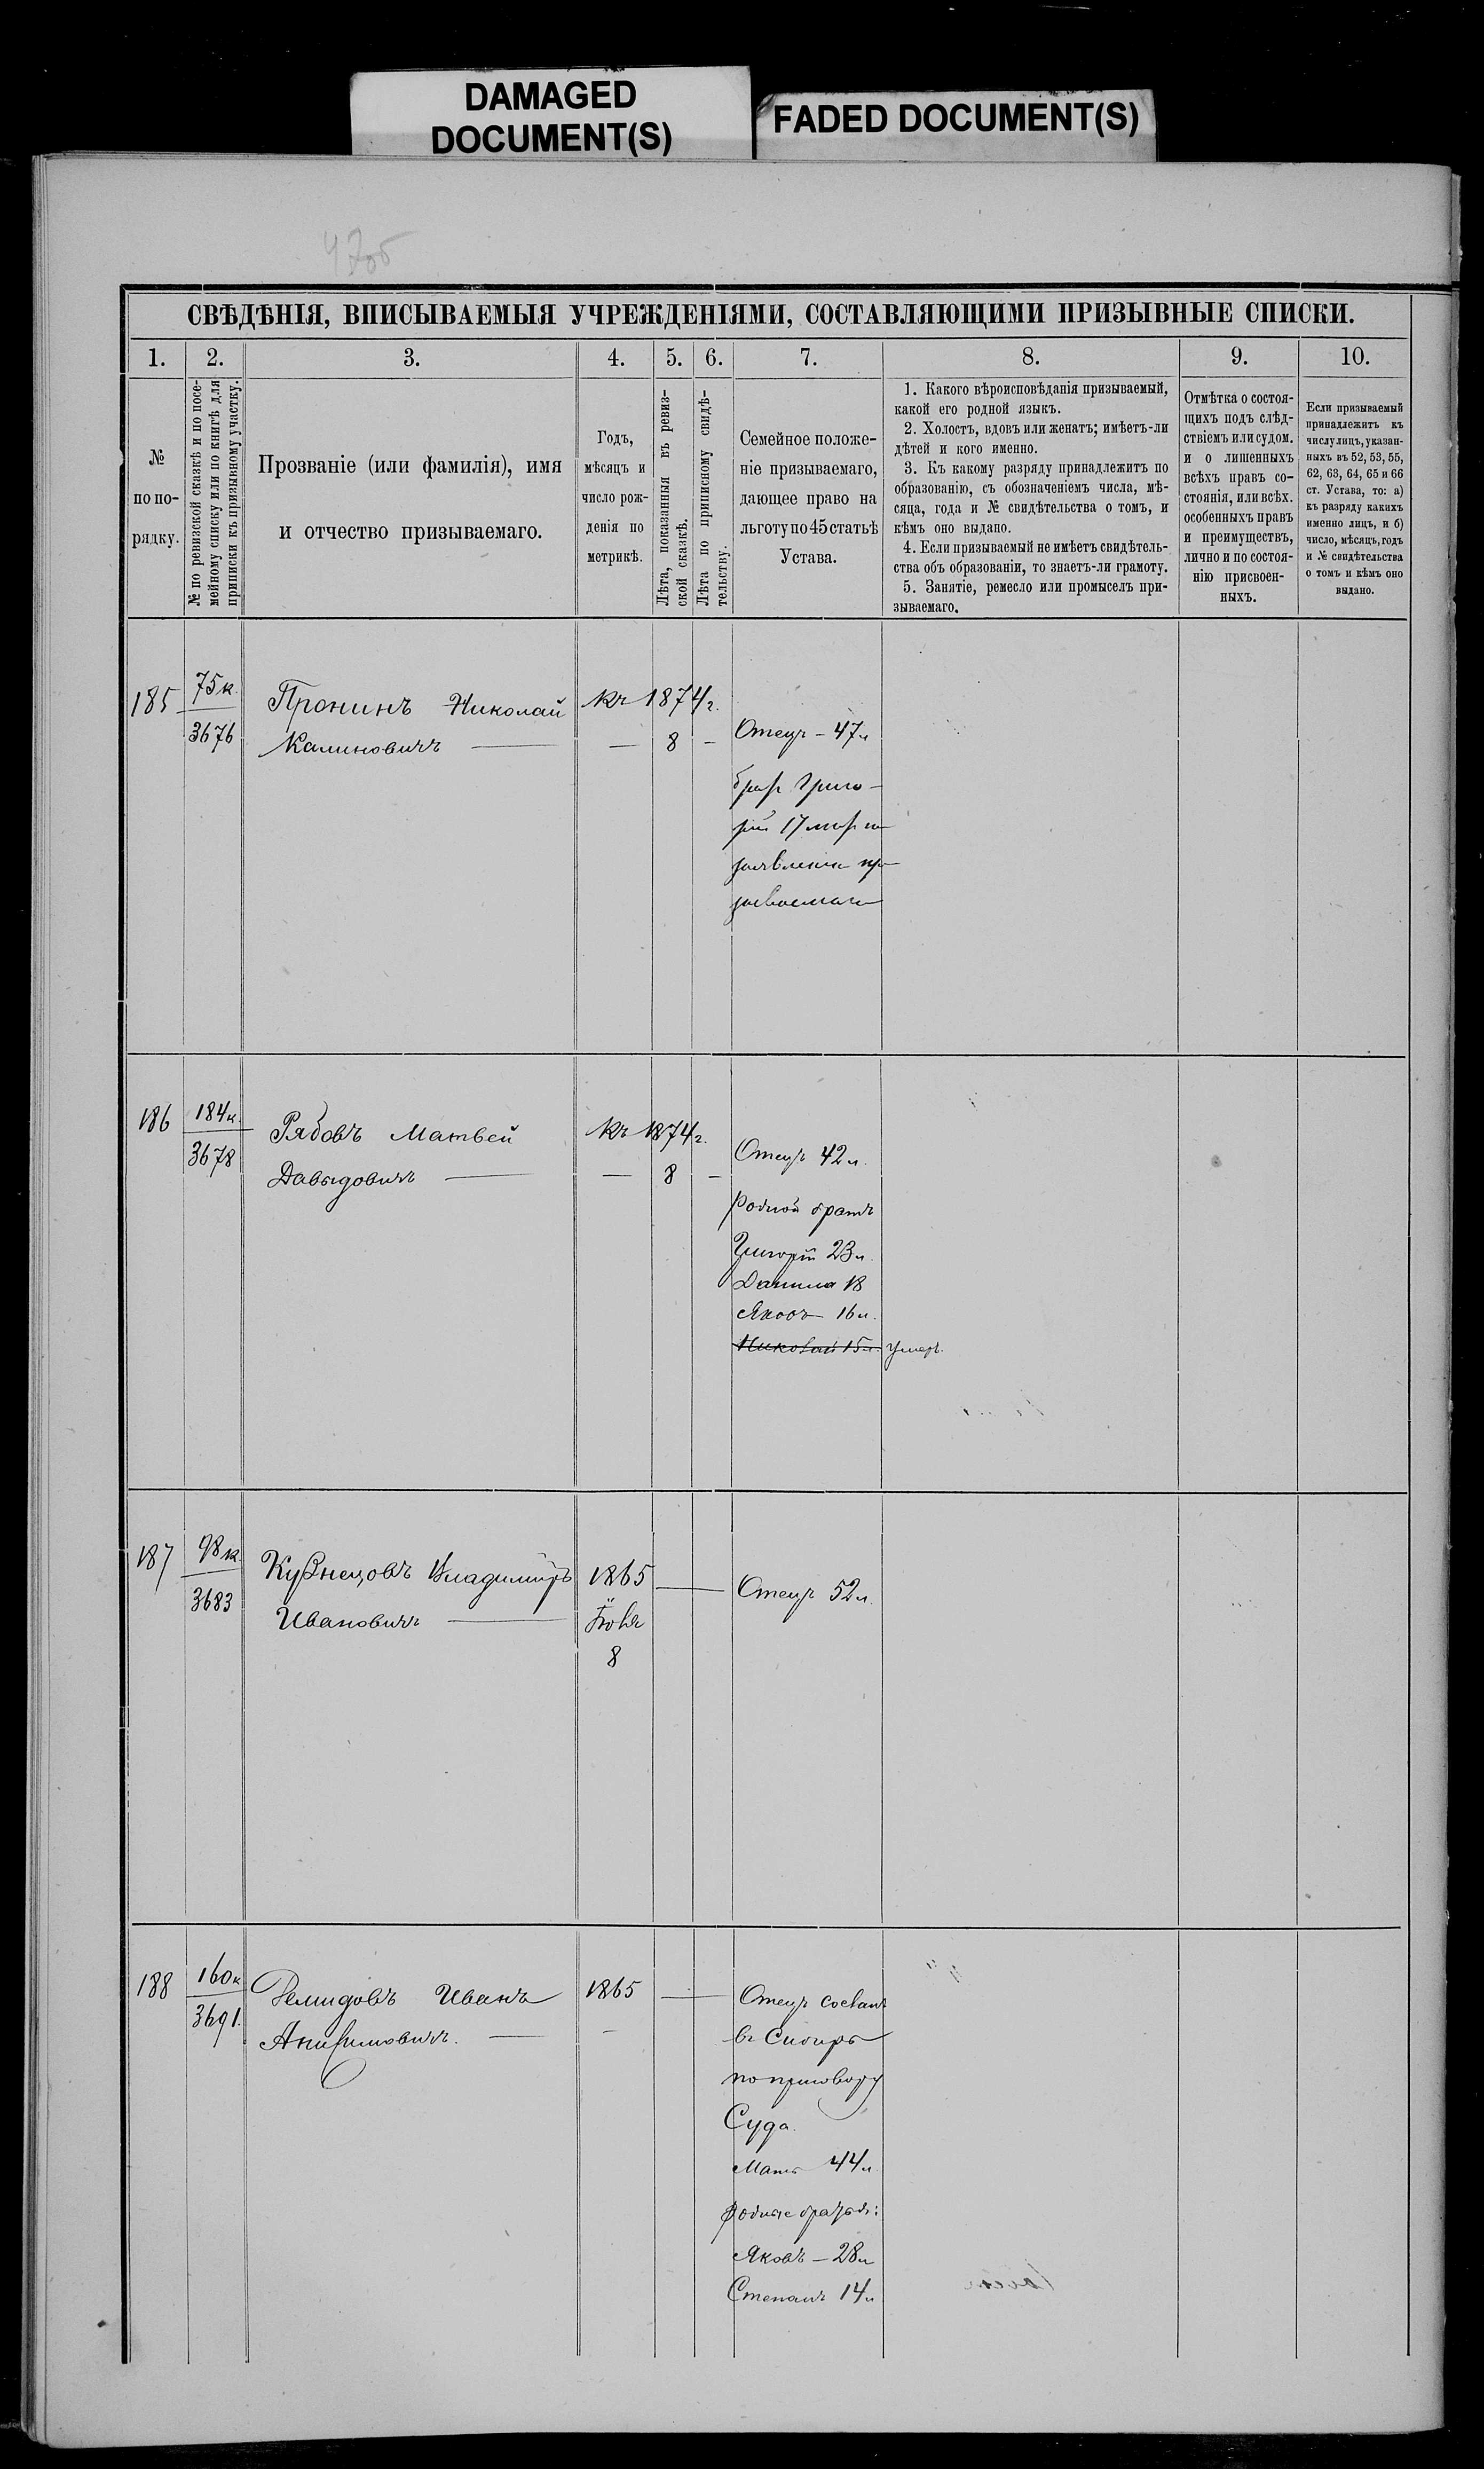 DAMAGED
DOCUMENT(S)
FADED DOCUMENT(S)
СВѢДѢНІЯ, ВПИСЫВАЕМЫЯ УЧРЕЖДЕНІЯМИ, СОСТАВЛЯЮЩИМИ ПРИЗЫВНЫЕ СПИСКИ.
1.
2.
3.
4.
5.
6.
7.
8.
9.
10.
№
по по-
рядку.
№ по ревизской сказкѣ и по посе-
мейному списку или по книгѣ для
приписки къ призывному участку.
Прозваніе (или фамилія), имя
и отчество призываемаго.
Годъ,
мѣсяцъ и
число рож-
денія по
метрикѣ.
Лѣта, показанныя въ ревиз-
ской сказкѣ.
Лѣта по приписному свидѣ-
тельству.
Семейное положе-
ніе призываемаго,
дающее право на
льготу по 45 статьѣ
Устава.
1. Какого вѣроисповѣданія призываемый,
какой его родной языкъ.
2. Холостъ, вдовъ или женатъ; имѣетъ-ли
дѣтей и кого именно.
3. Къ какому разряду принадлежитъ по
образованію, съ обозначеніемъ числа, мѣ-
сяца, года и № свидѣтельства о томъ, и
кѣмъ оно выдано.
4. Если призываемый не имѣетъ свидѣтель-
ства объ образованіи, то знаетъ-ли грамоту.
5. Занятіе, ремесло или промыселъ при-
зываемаго.
Отмѣтка о состоя-
щихъ подъ слѣд-
ствіемъ или судом.
и о лишенныхъ
всѣхъ правъ со-
стоянія, или всѣх.
особенныхъ правъ
и преимуществъ,
лично и по состоя-
нію присвоен-
ныхъ.
Если призываемый
принадлежитъ къ
числу лицъ, указан-
ныхъ въ 52, 53, 55,
62, 63, 64, 65 и 66
ст. Устава, то: а)
къ разряду какихъ
именно лицъ, и б)
число, мѣсяцъ, годъ
и № свидѣтельства
о томъ и кѣмъ оно
выдано.
185
75к.
3676
Пронинъ Николай
Калиновичъ —
Къ 1874 г.
— 8 —
Отецъ – 47 л
братъ Григо-
рій 17 лѣтъ по
заявленію при-
зываемаго
186
184к.
3678
Рябовъ Матвей
Давыдовичъ —
Къ 1874 г.
— 8 —
Отецъ 42 л.
родной братъ
Григорій 23 л.
Данила 18
Яковъ 16 л.
Николай 15 л. умеръ.
187
98к
3683
Кузнецовъ Владимиръ
Ивановичъ —
1865
8
—
Отецъ 52 л.
188
160к
3691.
Демидовъ Иванъ
Анисимовичъ. —
1865
—
—
Отецъ сосланъ
въ Сибирь
по приговору
Суда.
Мать 44 л.
родные братья:
Яковъ – 28 л
Степанъ 14 л